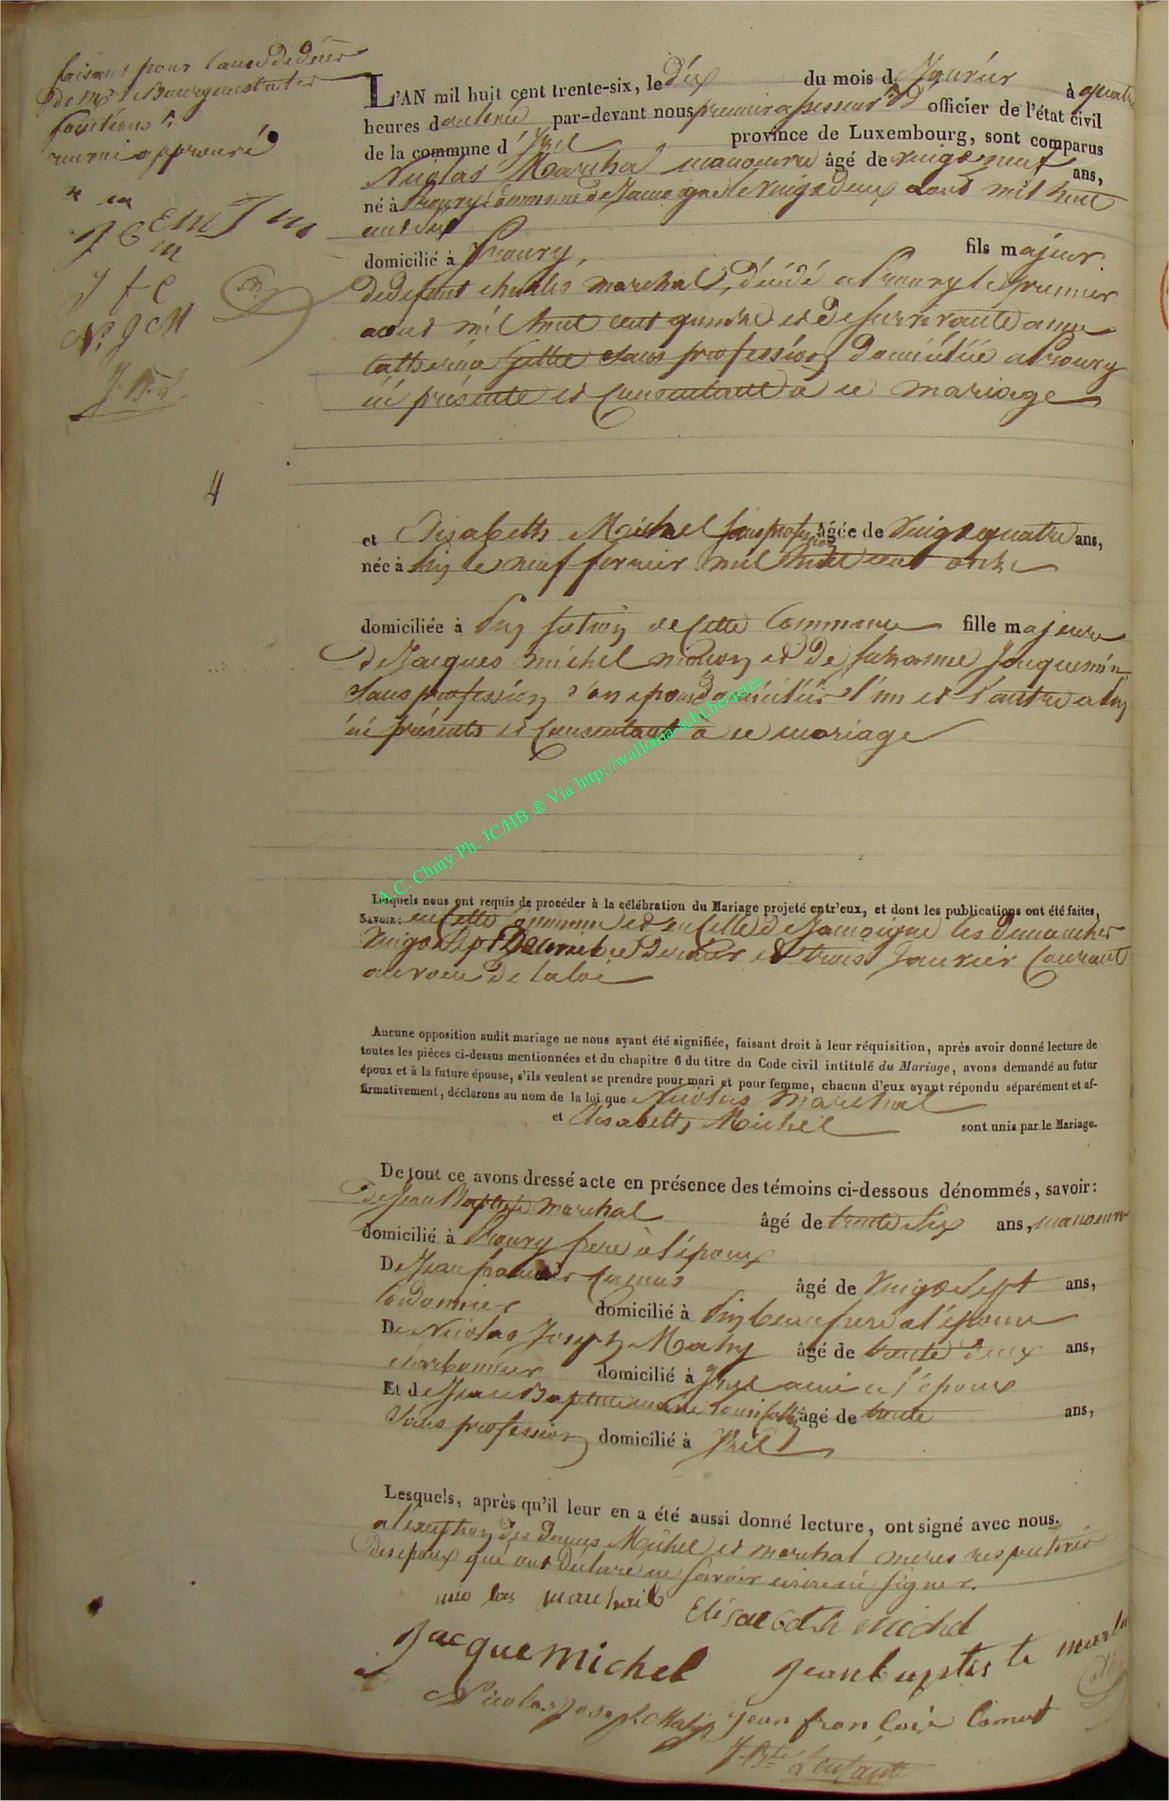 faisant pour cause de décès
de Mr le Bourguemestre les
fonctions
renvoi approuvé
n m
J B M
J f C
N. J M
4
L'AN mil huit cent trente-six, le dix du mois d Janvier à quatre
heures du soir par-devant nous premier assesseur officier de l'état civil
de la commune d' Izel province de Luxembourg, sont comparus
Nicolas Marchal manoeuvre âgé de vingt neuf ans,
né à Prouvy Commune de Jamoigne le vingt deux aout mil huit
cent six
domicilié à Prouvy, fils majeur
de defunt charles marchal, décédé a Prouvy le premier
aout mil huit cent quinze et de survivante anne
catherine sans profession domiciliée a Prouvy
ici présente et consentante à ce mariage
et Elisabeth Michel sans profession âgée de vingt quatre ans,
née à Pin le neuf fevrier mil huit cent onze
domiciliée à Pin section de cette Commune fille majeure
de Jacques michel maçon et de susanne Jacquemin
sans profession son epouse domiciliés l'un et l'autre a Pin
ici présents et consentants à ce mariage
A.C. Chiny Ph. JC/HB ® Via http://wallonia-asbl.be/actes
Lesquels nous ont requis de procéder à la célébration du Mariage projeté entr'eux, et dont les publications ont été faites,
SAVOIR: en cette commune et en celle de Jamoigne les dimanches
vingt sept Decembre dernier et trois Janvier courant
au voeu de la loi
Aucune opposition audit mariage ne nous ayant été signifiée, faisant droit à leur réquisition, après avoir donné lecture de
toutes les pièces ci-dessus mentionnées et du chapitre 6 du titre du Code civil intitulé du Mariage, avons demandé au futur
époux et à la future épouse, s'ils veulent se prendre pour mari et pour femme, chacun d'eux ayant répondu séparément et af-
firmativement, déclarons au nom de la loi que Nicolas Marchal
et Elisabeth Michel sont unis par le Mariage.
De tout ce avons dressé acte en présence des témoins ci-dessous dénommés, savoir:
De Jean Baptiste Marchal âgé de trente six ans, manoeuvre
domicilié à Prouvy frere à l'époux
De Jean francois Camus âgé de vingt sept ans,
Cordonnier domicilié à Pin beaufrere a l'épouse
De Nicolas Joseph Mahy âgé de trente deux ans,
charbonnier domicilié à Izel ami a l'époux
Et de Jean Baptiste âgé de trente ans,
sans profession domicilié à Izel
Lesquels, après qu'il leur en a été aussi donné lecture, ont signé avec nous.
a l'exception des dames Michel et marchal meres respectives
des epoux qui ont déclaré ne savoir écrire ni signer.
nico las marchail Elisabeth michel
Jacque Michel Jean baptis te marchal
Nicolas Joseph Mahy Jean francois Camus
J. Bte